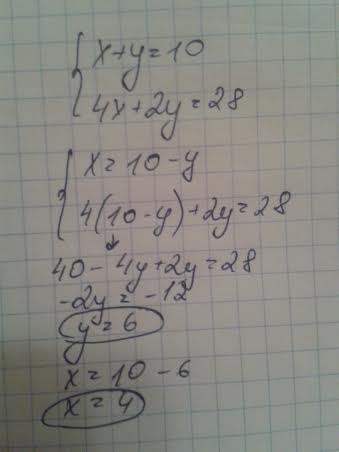 x+y=10
4x+2y=28
x=10-y
4(10-y)+2y=28
40-4y+2y=28
-2y=-12
y=6
x=10-6
x=4